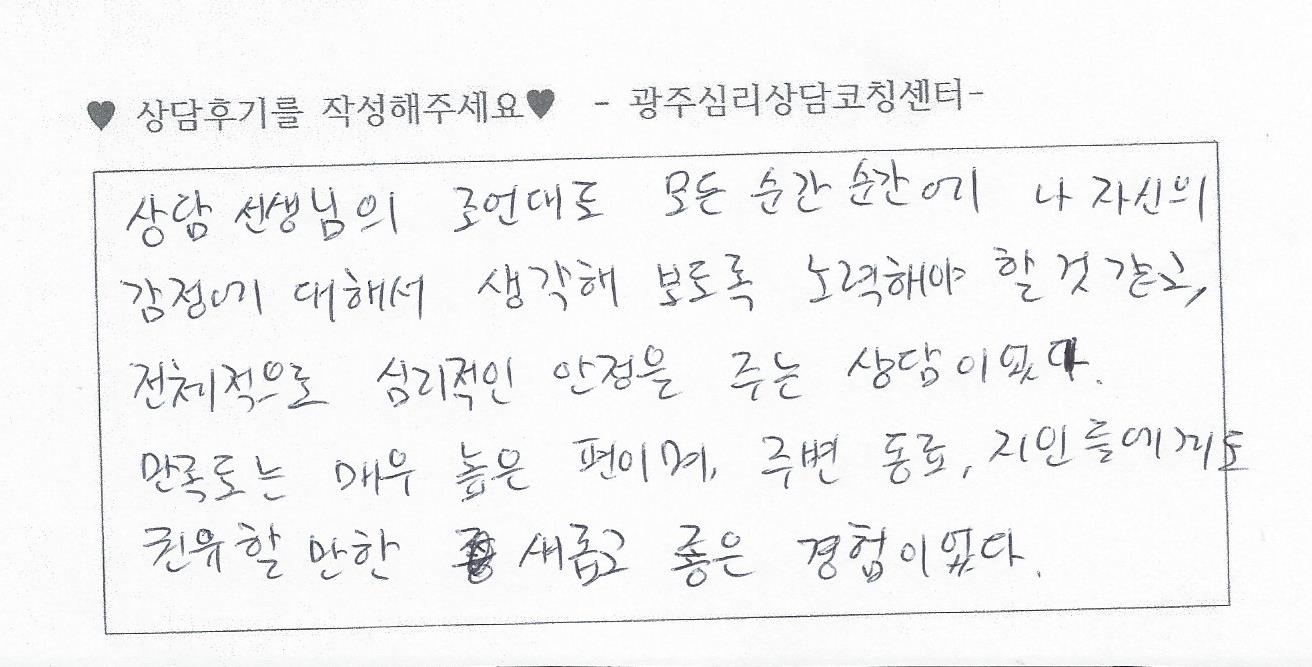 ♥ 상담후기를 작성해주세요♥ - 광주심리상담코칭센터-
상담 선생님의 조언대로 모든 순간 순간에 나 자신의
감정에 대해서 생각해 보도록 노력해야 할 것 같고,
전체적으로 심리적인 안정을 주는 상담이었다.
만족도는 매우 높은 편이며, 주변 동료, 지인들에게도
권유할 만한 새롭고 좋은 경험이었다.